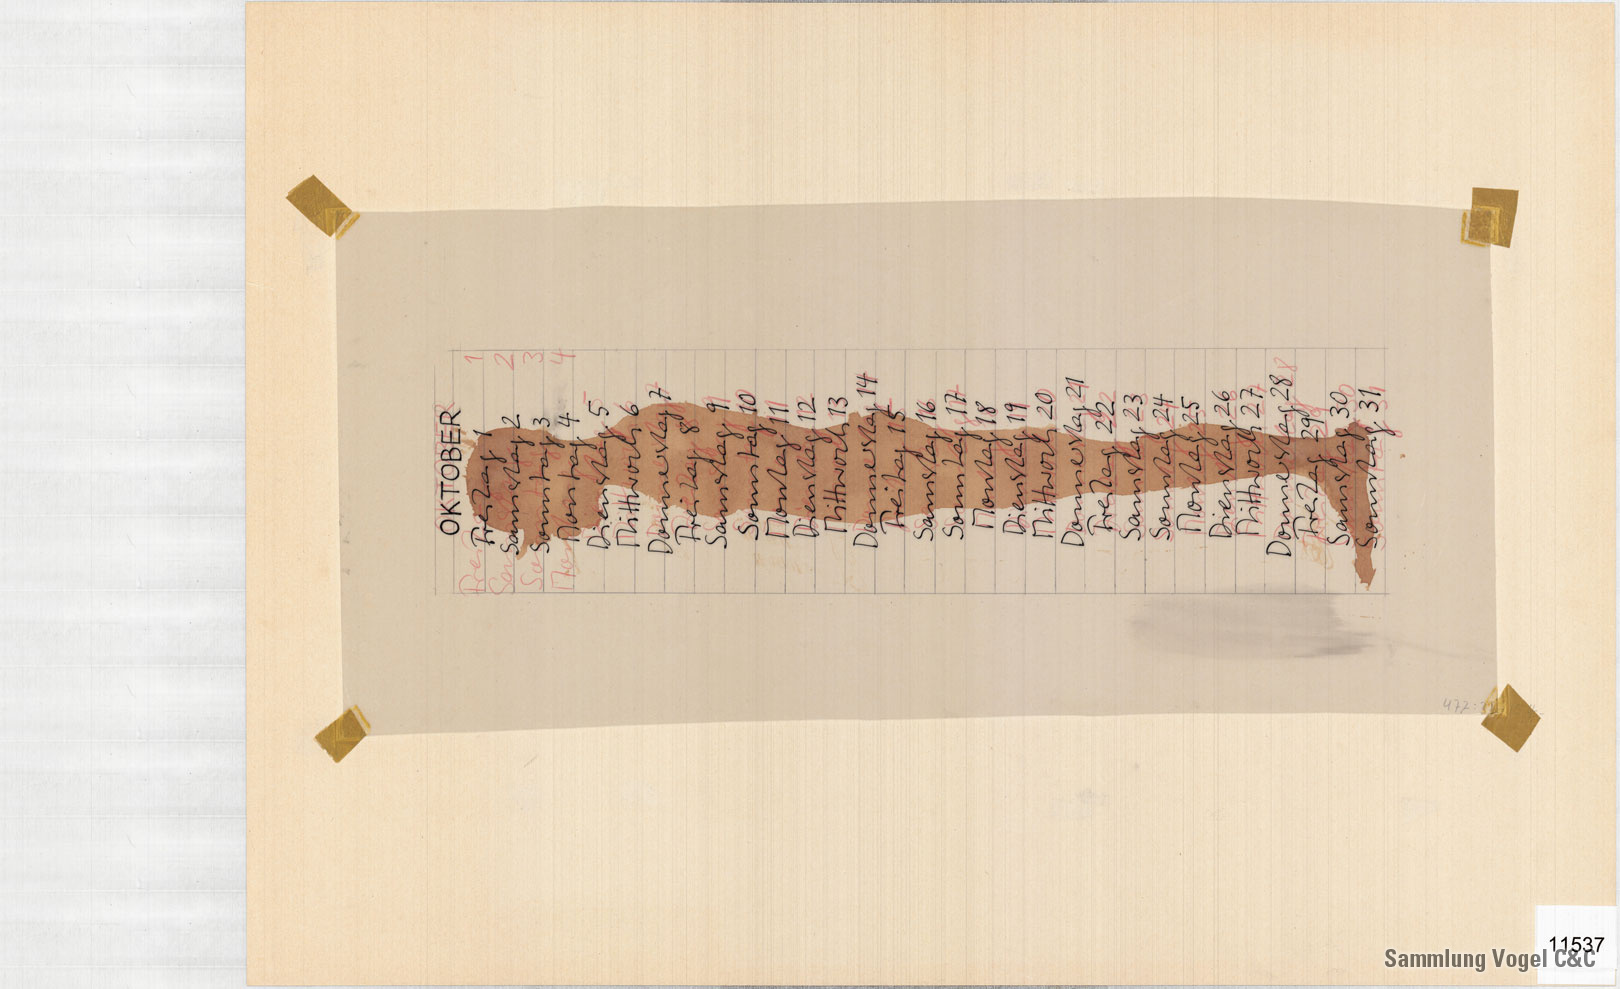 OKTOBER
Freitag 1
Samstag 2
Sonntag 3
Montag 4
Dienstag 5
Mittwoch 6
Donnerstag 7
Freitag 8
Samstag 9
Sonntag 10
Montag 11
Dienstag 12
Mittwoch 13
Donnerstag 14
Freitag 15
Samstag 16
Sonntag 17
Montag 18
Dienstag 19
Mittwoch 20
Donnerstag 21
Freitag 22
Samstag 23
Sonntag 24
Montag 25
Dienstag 26
Mittwoch 27
Donnerstag 28
Freitag 29
Samstag 30
Sonntag 31
11537
Sammlung Vogel C&C